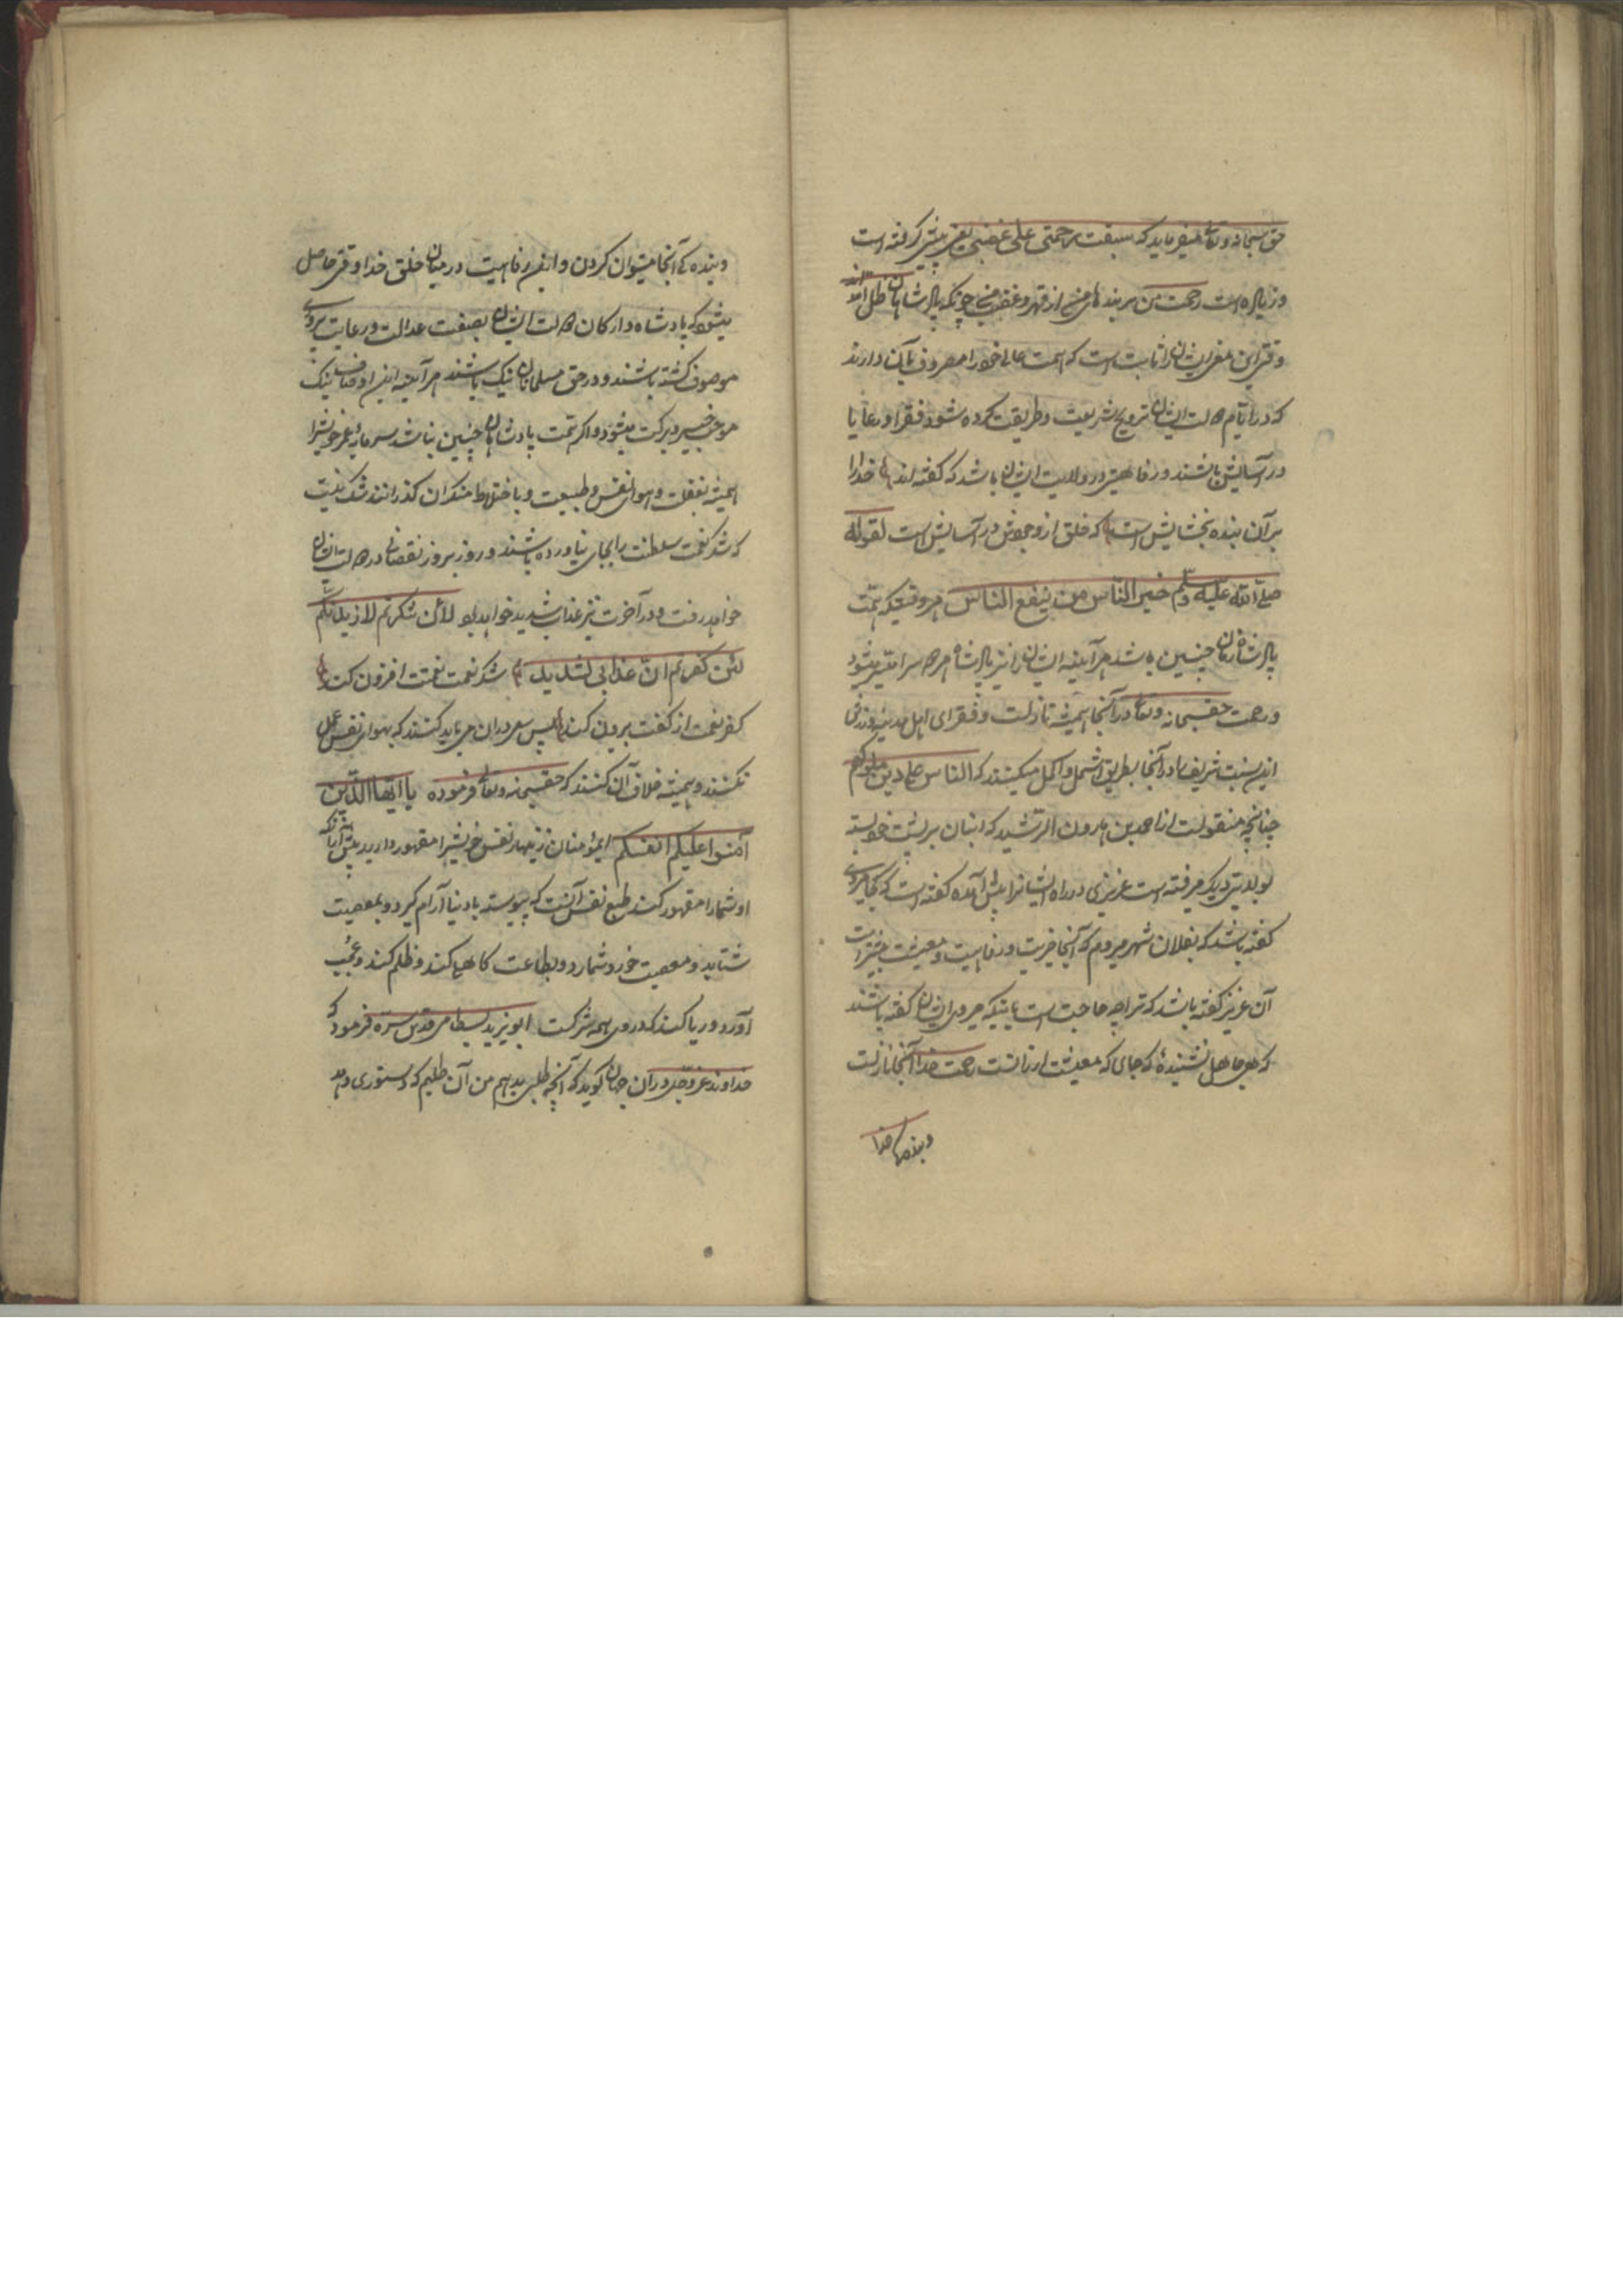 حق سبحانه وتعالی میفرماید که سبقت رحمتی علی غضبی یعنی پیشی گرفته است
وزیاده است رحمت من بر بندهای من از قهر وغضب من چونکه پادشاهان ظل الله اند
وقتی این معنی ایشان را ثابت است که همت عالی خود را مصروف بآن دارند
که در ایام دولت ایشان ترویج شریعت وطریقت کرده شود وفقرا ورعایا
در آسایش باشند ورفاهیتی در ولایت ایشان باشد که گفته اند خدا را
بر آن بنده بخشایش است که خلق از وجودش در آسایش است لقوله
صلی الله علیه وسلم خیر الناس من ینفع الناس هر وقتیکه همت
پادشاه زمان چنین باشد هر آینه ایشان را نیز پادشاهی هر دو سرا میسر میشود
ورحمت حق سبحانه وتعالی در آنجا همیشه نازلست وفقرای اهل مدینه
این نسبت شریف را در آنجا بطریق اشمل واکمل میکنند که الناس علی دین ملوکهم
چنانچه منقولست از احمد بن هارون الرشید که انبان بر پشت خود بسته
بولایتی دیگر میرفته است عزیزی در راه ایشانرا پیش آمده گفته است که کجا میروی
گفته باشد که بفلان شهر میروم که آنجا خیریت ورفاهیت ومعیشت بیشتر است
آن عزیز گفته باشد که ترا چه حاجت است باینکه میروی ایشان گفته باشند
که ای جاهل نشنیدۀ که جای که معیشت ارزانست رحمت خدا آنجا نازلست
وبندهای خدا
وبنده کی آنجا میتوان کردن واین رفاهیت در میان خلق خدا وقتی حاصل
میشود که پادشاه وارکان دولت ایشان بصفت عدالت ورعایت پروری
موصوف گشته باشند ودر حق مسلمانان نیک باشند هر آینه این اوصاف نیک
موجب خیر وبرکت میشود واگر همت پادشاهان چنین نباشد سرمایۀ عمر خویش را
همیشه بغفلت وهوای نفس وطبیعت وباختلاط منکران گذرانند شک نیست
که شکر نعمت سلطنت را بجای نیاورده باشند وروز بروز نقصانی در دولت ایشان
خواهد رفت ودر آخرت نیز عذاب شدید خواهد بود لأن شکرتم لازیدنکم
لئن کفرتم ان عذابی لشدید شکر نعمت نعمتت افزون کند
کفر نعمت از کفت بیرون کند پس سروران می باید کنند که بهوای نفس عمل
نکنند وهمیشه خلاف آن کنند که حق سبحانه وتعالی فرموده یا ایها الذین
آمنوا علیکم انفسکم ای مؤمنان زینهار نفس خویش را مقهور دارید پیش از آنکه
او شما را مقهور کند طبع نفس آنست که پیوسته با دنیا آرام گیرد وبمعصیت
شتابد ومعصیت خرد شمارد وبطاعت کاهلی کند وظلم کند وعجب
آورد وریا کند که درو همه شرکست ابو یزید بسطامی قدس سره فرمود که
خداوند عز وجل در آن جهان گوید که آنچه طلبی بدهم من آن طلبم که دستوری دهد